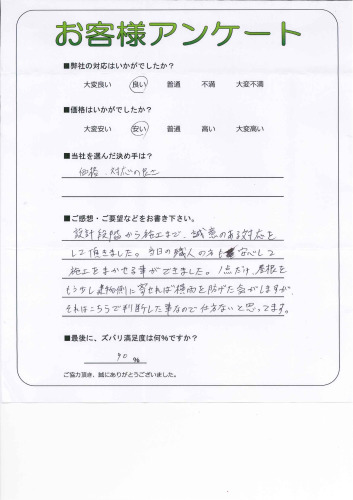 お客様アンケート
■弊社の対応はいかがでしたか？
大変良い 良い 普通 不満 大変不満
■価格はいかがでしたか？
大変安い 安い 普通 高い 大変高い
■当社を選んだ決め手は？
価格、対応の良さ
■ご感想・ご要望などをお書き下さい。
設計段階から施工まで、誠意のある対応を
して頂きました。当日の職人の方も安心して
施工をまかせる事ができました。1点だけ、屋根を
もう少し建物側に寄せれば横雨を防げた気がしますが、
それはこちらで判断した事なので仕方ないと思ってます。
■最後に、ズバリ満足度は何％ですか？
90 %
ご協力頂き、誠にありがとうございました。